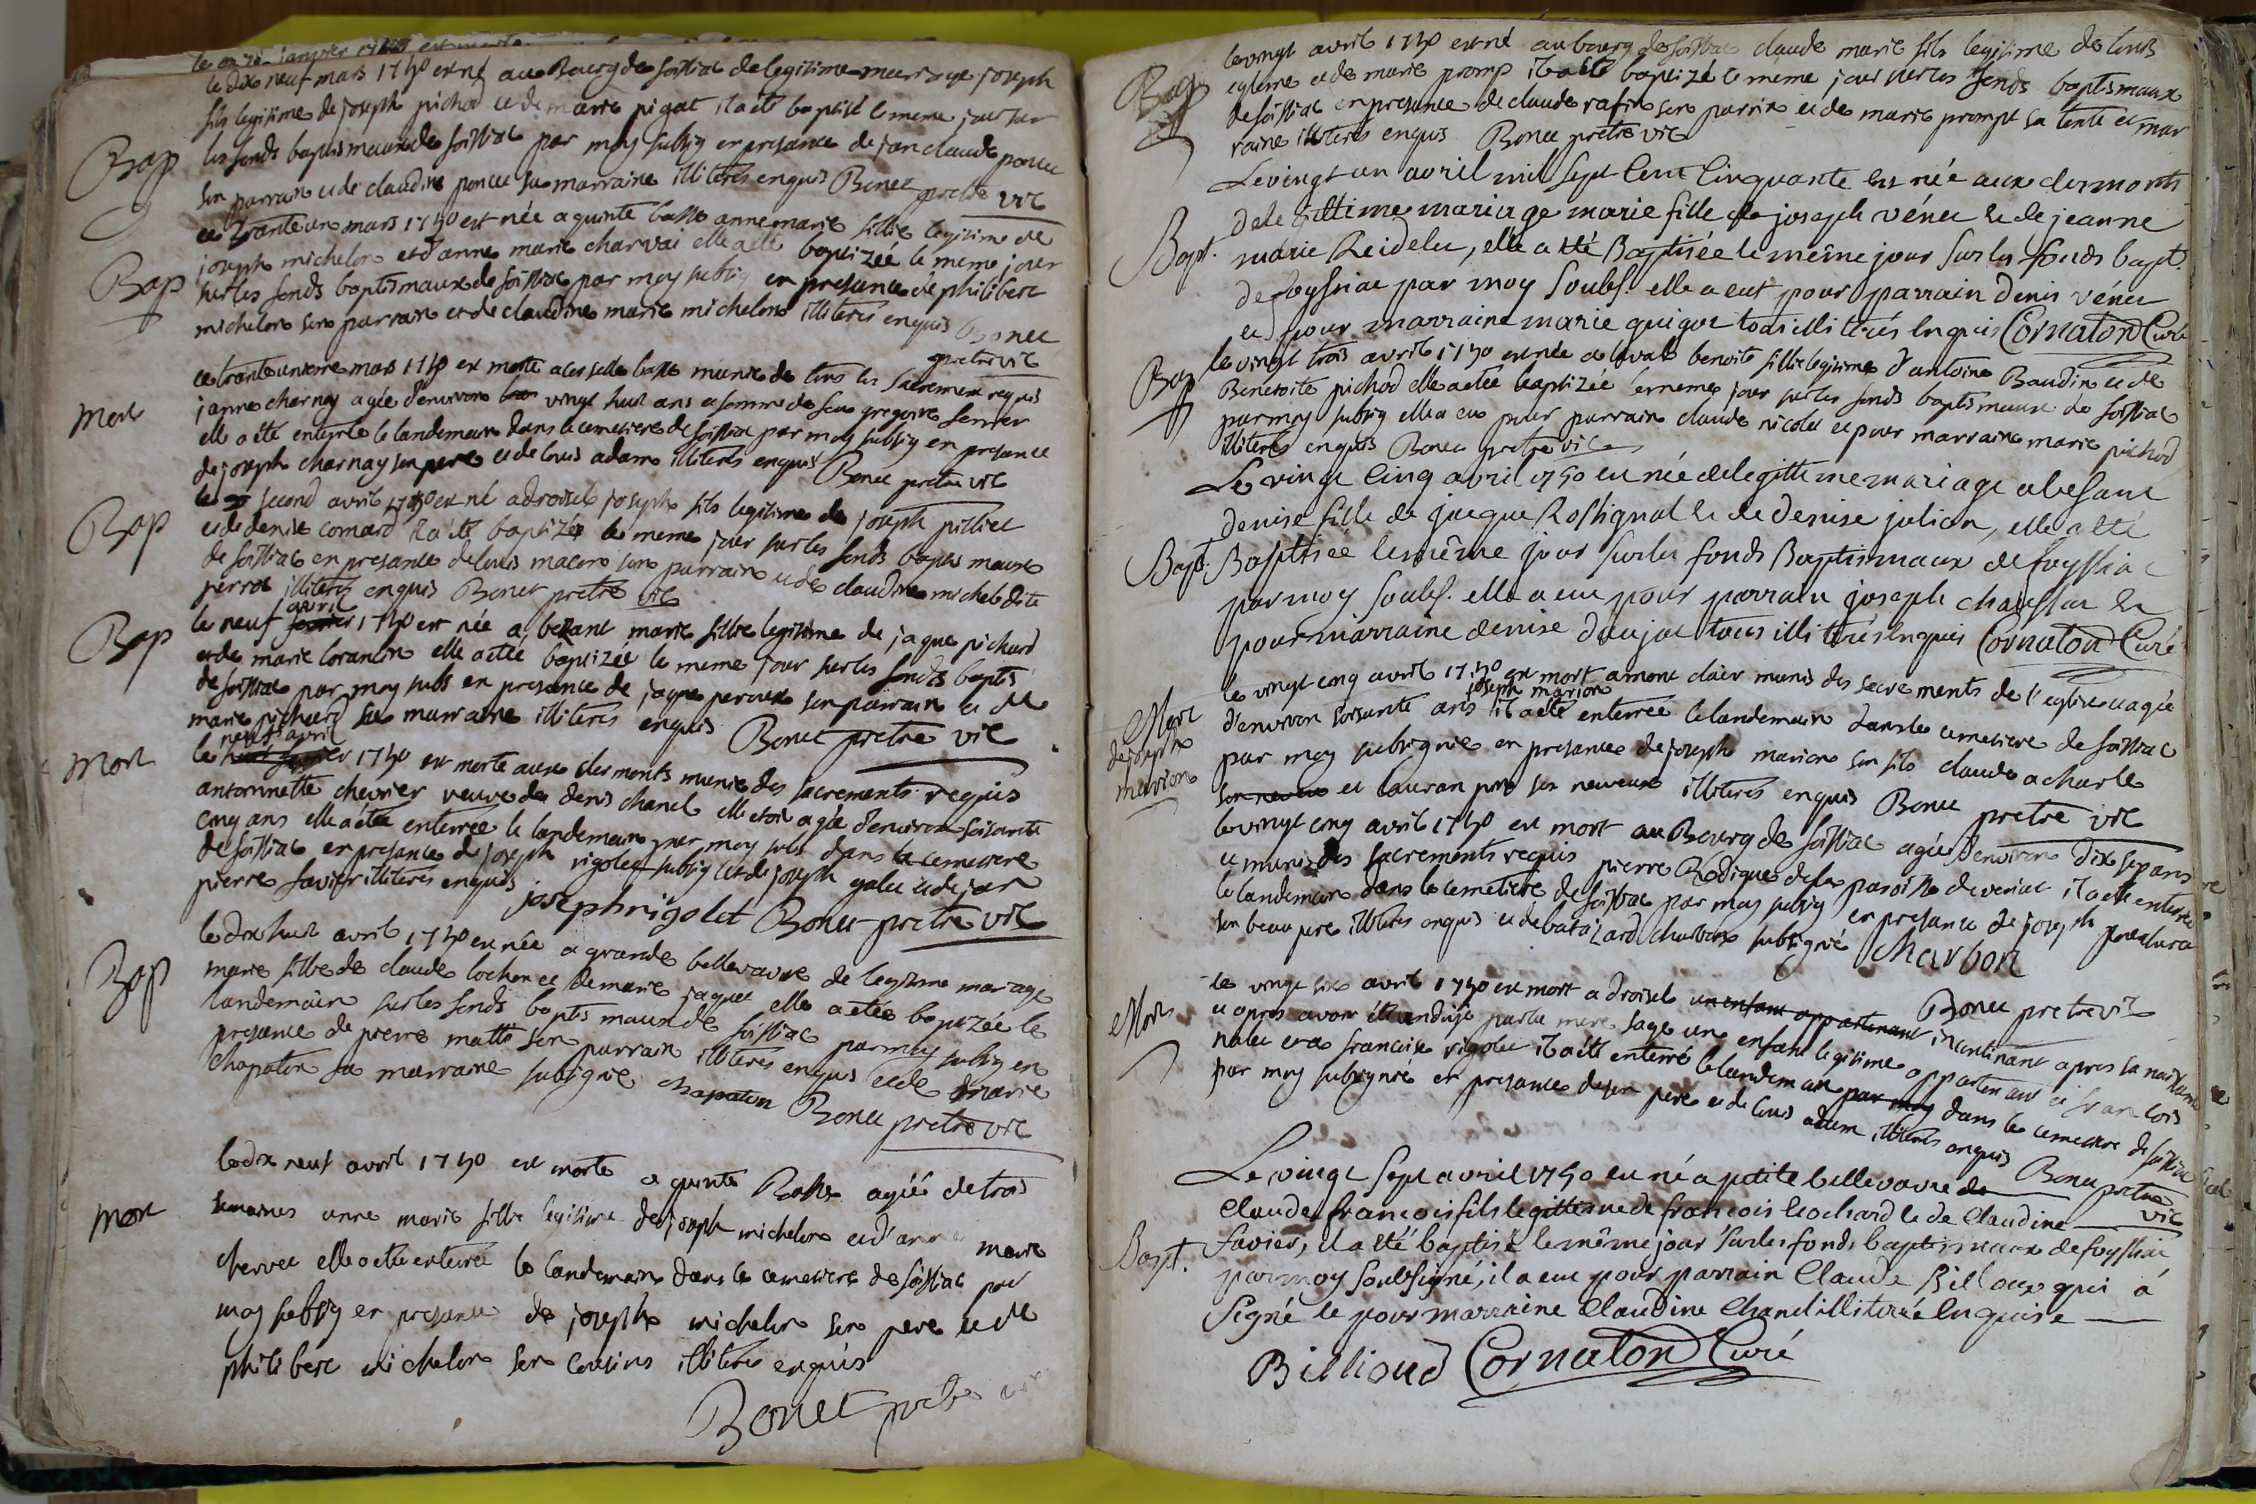 le dix neuf mars 1750 est né au Bourg de soissiac de legitime mariage joseph
fils legitime de joseph pichod et de marie pigat il a été baptisé le meme jour sur
Bap
les fonds baptismaux de soissiac par moy subsig en presance de jan claude poncet
son parrain et de claudine poncet sa marraine illiteres enquis Bonet pretre vic
ce trante un mars 1750 est née a quinte basse anne marie fillie legitime de
joseph michelon et d'anne marie charvai elle a eté baptizée le meme jour
Bap
sur les fonds baptismaux de soissiac par moy subsig en presance de philibert
michelon son parrain et de claudine marie michelon illiteres enquis Bonet
pretre vic
ce trante unieme mars 1750 est morte a corselle basse munie de tous les sacremens requis
Mort
janne charnay agée d'environ vingt huit ans et femme de feu gregoire
elle a été enterrée le landemain dans le cemetiere de soissiac par moy subsig en presance
de joseph charnay son pere et de louis adam illiteres enquis Bonet pretre vic
le second avril 1750 est né a droisel joseph fils legitime de joseph pilliet
Bap
et de denise comard il a été baptizé le meme jour sur les fonds baptis maux
de soissiac en presance de louis macon son parrain et de claudine michel dite
perrot illiteres enquis Bonet pretre vic
avril
le neuf 1750 est née a besant marie fillie legitime de jaque pichard
Bap
et de marie lorancin elle a etée baptizée le meme jour sur les fonds baptis
de soissiac par moy subs en presance de jaque peroux son parrain et de
marie pichard sa marraine illiteres enquis Bonet pretre vic
neuf avril
Mort
le 1750 est morte aux clermonts munie des sacrements requis
antoinette chevrier veuve de denis chanel elle etoit agée d'environ soisante
cinq ans elle a étée enterrée le landemain par moy subs dans le cemetiere
de soissiac en presance de joseph rigolet subsig et de joseph galet et de jan
pierre favier illiteres enquis
joseph rigolet Bonet pretre vic
le dix huit avril 1750 est née a grande bellevavre de legitime mariage
Bap
marie fillie de claude lochon et de marie jaquet elle a etée baptizée le
landemain sur les fonds baptis maux de soissiac par moy subsig en
presance de pierre matti son parrain illiteres enquis et de marie
chapaton sa marraine subsignée chapaton Bonet pretre vic
le dix neuf avril 1750 est morte a quinte Basse agée de trois
Mort
semaines anne marie fillie legitime de joseph michelon et d'anne marie
chervet elle a etée enterrée le landemain dans le cemetiere de soissiac par
moy subsig en presance de joseph michelon son pere et de
philibert michelon son cousins illiteres enquis
Bonet pretre vic
le vingt avril 1750 est né au bourg de soissiac claude marie fils legitime de louis
Bap
et de marie promp il a été baptizé le meme jour sur les fonds baptismaux
de soissiac en presance de claude rafin son parrin et de marie prompt sa tente et mar
raine illiteres enquis Bonet pretre vic
Le vingt un avril mil sept cent Cinquante est née aux clermonts
de legittime mariage marie fille de joseph vénet & de jeanne
Bapt.
marie Reidelet, elle a été Baptisée le même jour sur les fonds bapt.
de soyssiac par moy soubs. elle a eut pour parrain denis vénet
et pour marraine marie guigue tous illiterés Enquis Cornaton Curé
le vingt trois avril 1750 est née a lavale benoite fillie legitime d'antoine Baudin et de
Bap
Benetoite pichod elle a etée baptizée le meme jour sur les fonds baptismaux de soissiac
par moy subsig elle a eu pour parrain claude nicolet et pour marraine marie pichod
illiteres enquis Bonet pretre vic
Le vingt Cinq avril 1750 est née de legittime mariage a besant
denise fille de jacque Rossignol & de denise julian, elle a été
Bapt.
Baptisée le même jour sur les fonds Baptismaux de soyssiac
par moy soubs. elle a eut pour parrain joseph chanssat &
pour marraine denise daujat tous illiterés Enquis Cornaton Curé
le vingt cinq avril 1750 est mort a mont clair munis des sacrements de l'eglise et agée
joseph marion
Mort
de joseph
marion
d'environ soisante ans il a été enterrée le landemain dans le cemetiere de soissiac
par moy subsignée en presance de joseph marion son fils claude acharle
son neveu et lauran pro ses neveux illiteres enquis Bonet pretre vic
le vingt cinq avril 1750 est mort au Bourg de soissiac agée d'environ dix sept ans
et munis des sacrements requis pierre Rodigue de la paroisse de veriat il a été enterré
le landemain dans le cemetiere de soissiac par moy subsig en presance de joseph
son beau pere illiteres enquis et de balazard charbon subsigné charbon
Bonet pretre vic
le vingt six avril 1750 est mort a droisel un enfant appartenant incontinant apres sa naissance
Mort
et apres avoir été ondoyé par la mere sage un enfant legitime appartenant a francois
nalet et a francoise rigolet il a été enterré le landemain par moy dans le cemetiere de soissiac
par moy subsignée en presance de son pere et de louis adam illiteres enquis
Bonet pretre
vic
Le vingt sept avril 1750 est né a petite bellevavre de
Claude francois fils legittime de francois Cochard & de Claudine
Bapt.
favier, il a été baptisé le même jour sur les fonds baptismaux de soyssiac
par moy soubsigné, il a eut pour parrain Claude Billoux qui a
signé & pour marraine Claudine Chanel illiterée Enquise
Billioud Cornaton Curé